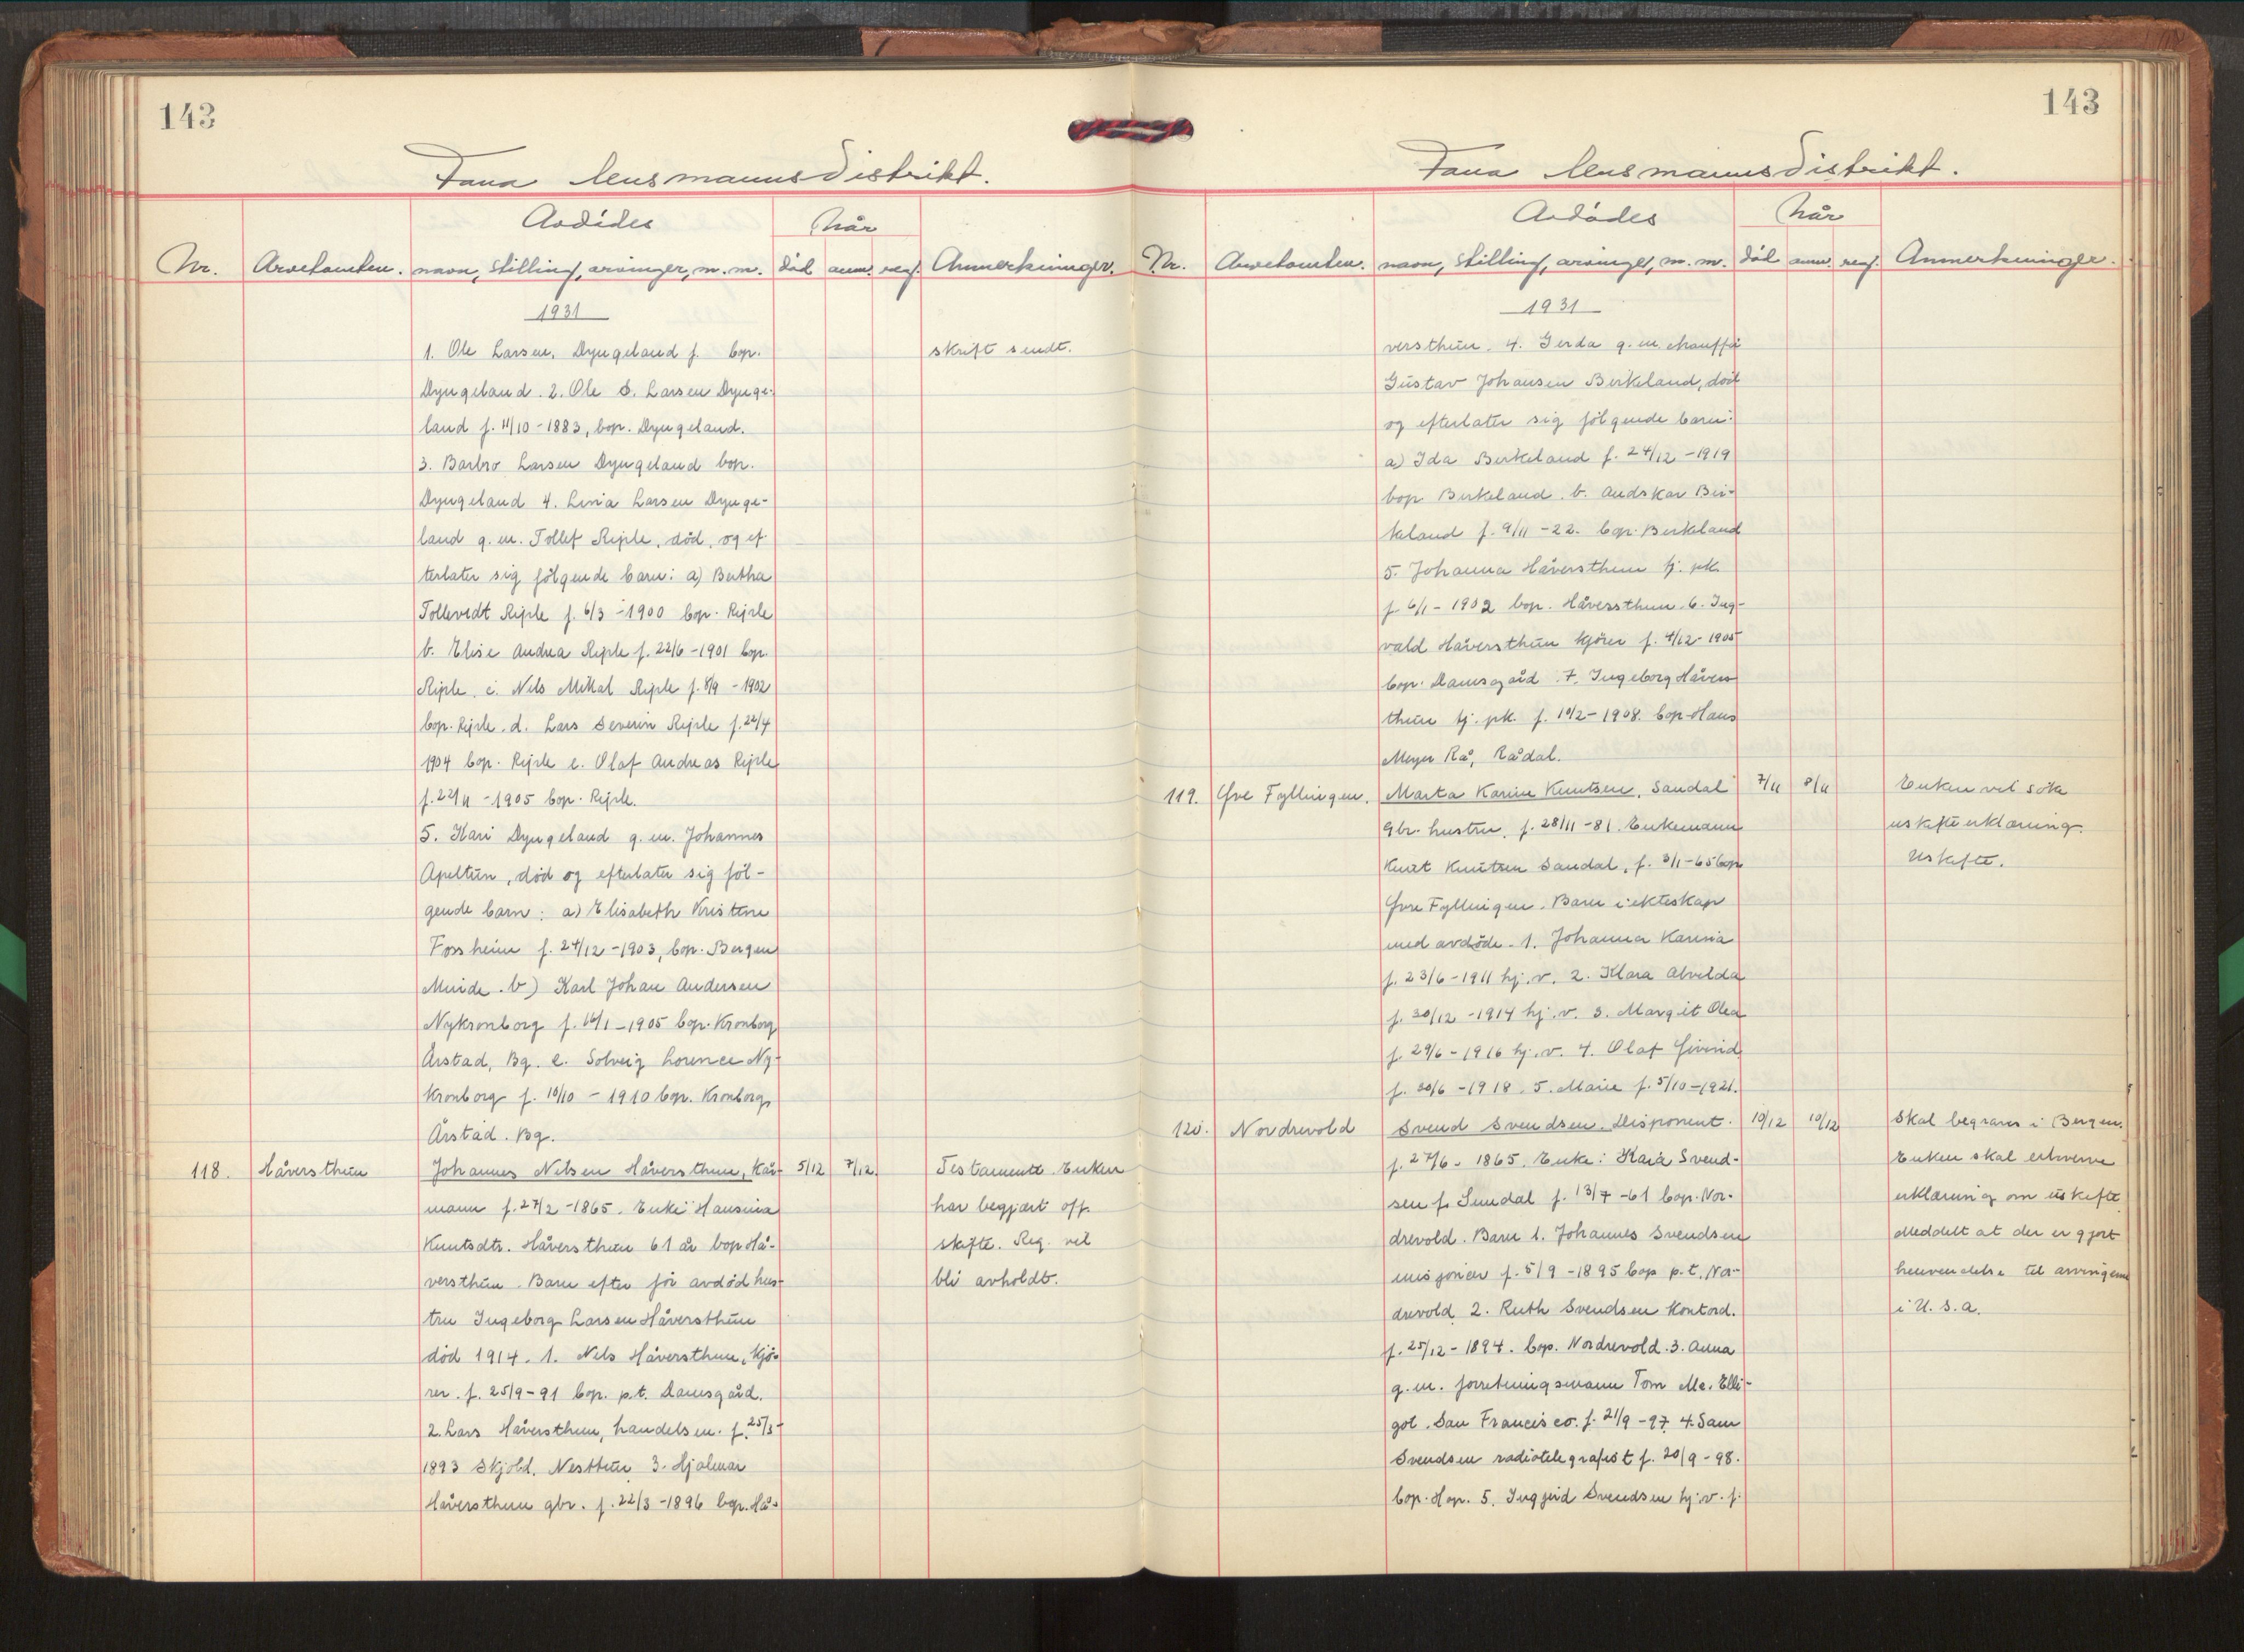 143
Fana lensmannsdistrikt.
Nr. Arvetomten. Avdødes navn, stilling, arvinger, m. m. Når død anm. reg. Anmerkninger.
1931
1. Ole Larsen, Dyngeland f. bop. skrift sendt.
Dyngeland. 2. Ole S. Larsen Dynge-
land f. 11/10 - 1883, bop. Dyngeland.
3. Barbro Larsen Dyngeland bop.
Dyngeland 4. Lina Larsen Dynge-
land g. m. Tollef Riple, död, og ef-
terlater sig fölgende barn: a) Bertha
Tollevedt Riple f. 6/3 - 1900 bop. Riple
b. Elise Andrea Riple f. 22/6 - 1901 bop.
Riple. c. Nils Mikal Riple f. 8/9 - 1902
bop. Riple. d. Lars Severin Riple f. 22/4
1904 bop. Riple e. Olaf Andreas Riple
f. 22/11 - 1905 bop. Riple.
5. Kari Dyngeland g. m. Johannes
Apeltun, död og efterlater sig föl-
gende barn: a) Elisabeth Kristine
Fossheim f. 24/12 - 1903, bop. Bergen
b) Karl Johan Andersen
Nykronborg f. 16/1 - 1905 bop. Kronborg
Årstad, Bg. c. Solveig Lorence Ny-
kronborg f. 10/10 - 1910 bop. Kronborg,
Årstad. Bg.
118. Håversthun Johannes Nilsen Håversthun, Kår- 5/12 7/12. Testamente. Enken
mann f. 27/2 - 1865. Enke: Hansina har begjært off.
Knutsdtr. Håversthun 61 år bop Hå- skifte. Reg. vil
versthun. Barn efter för avdöd hus- bli avholdt.
tru Ingeborg Larsen Håversthun
död 1914. 1. Nils Håversthun, kjö-
rer. f. 25/9 - 91 bop. p.t. Damsgård.
2. Lars Håversthun, handelsm. f. 25/3 -
1893 Skjold, Nesttun 3. Hjalmar
Håversthun gbr. f. 22/3 - 1896 bop. Hå-
143
Fana lensmannsdistrikt.
Nr. Arvetomten. Avdødes navn, stilling, arvinger, m. m. Når død anm. reg. Anmerkninger.
1931
versthun. 4. Gerda g. m. chauffør
Gustav Johansen Birkeland, död
og efterlater sig fölgende barn:
a) Ida Birkeland f. 24/12 - 1919
bop. Birkeland. b. Audskar Bir-
keland f. 9/11 - 22. bop. Birkeland
5. Johanna Håversthun tj. pk.
f. 6/1 - 1902 bop. Håversthun. 6. Ing-
vald Håversthun kjörer f. 4/12 - 1905
bop. Damsgård. 7. Ingeborg Håvers-
thun tj. pk. f. 10/2 - 1908. bop Hans
Meyer Rå, Rådal.
119. Øvre Fyllingen. Marta Karine Knutsen, Sandal 7/11 8/11 Enken vil söke
Gbr. hustru, f. 28/11 - 81. Enkemann uskifteerklæring.
Knut Knutsen Sandal, f. 3/1 - 65 bop Uskifte.
Øvre Fyllingen. Barn i ekteskap
med avdöde. 1. Johanna Karina
f. 23/6 - 1911 hj. v. 2. Klara Alvilda
f. 30/12 - 1914 hj. v. 3. Margit Olea
f. 29/6 - 1916 hj. v. 4. Olaf Øivind
f. 20/6 - 1918. 5. Marie f. 5/10 - 1921.
120. Nordrevold Svend Svendsen. Disponent. 10/12 10/12 Skal begraves i Bergen.
f. 27/6 - 1865. Enke: Kaia Svend- Enken skal erhverve
sen f. Sundal f. 13/7 - 61 bop. Nor- erklæring om uskifte
drevold. Barn 1. Johannes Svendsen Meddelt at der er gjort
misjonær f. 5/9 - 1895 bop p.t. Nor- henvendelse til arvingene
drevold 2. Ruth Svendsen Kontord. i U.S.A.
f. 25/12 - 1894. bop. Nordrevold. 3. Anna
g. m. forretningsmann Tom Mc. Elli-
got. San Francisco. f. 21/9 - 97. 4. Sam
Svendsen radiotelegrafist f. 20/9 - 98.
bop. Hop. 5. Ingjerd Svendsen hj. v. f.